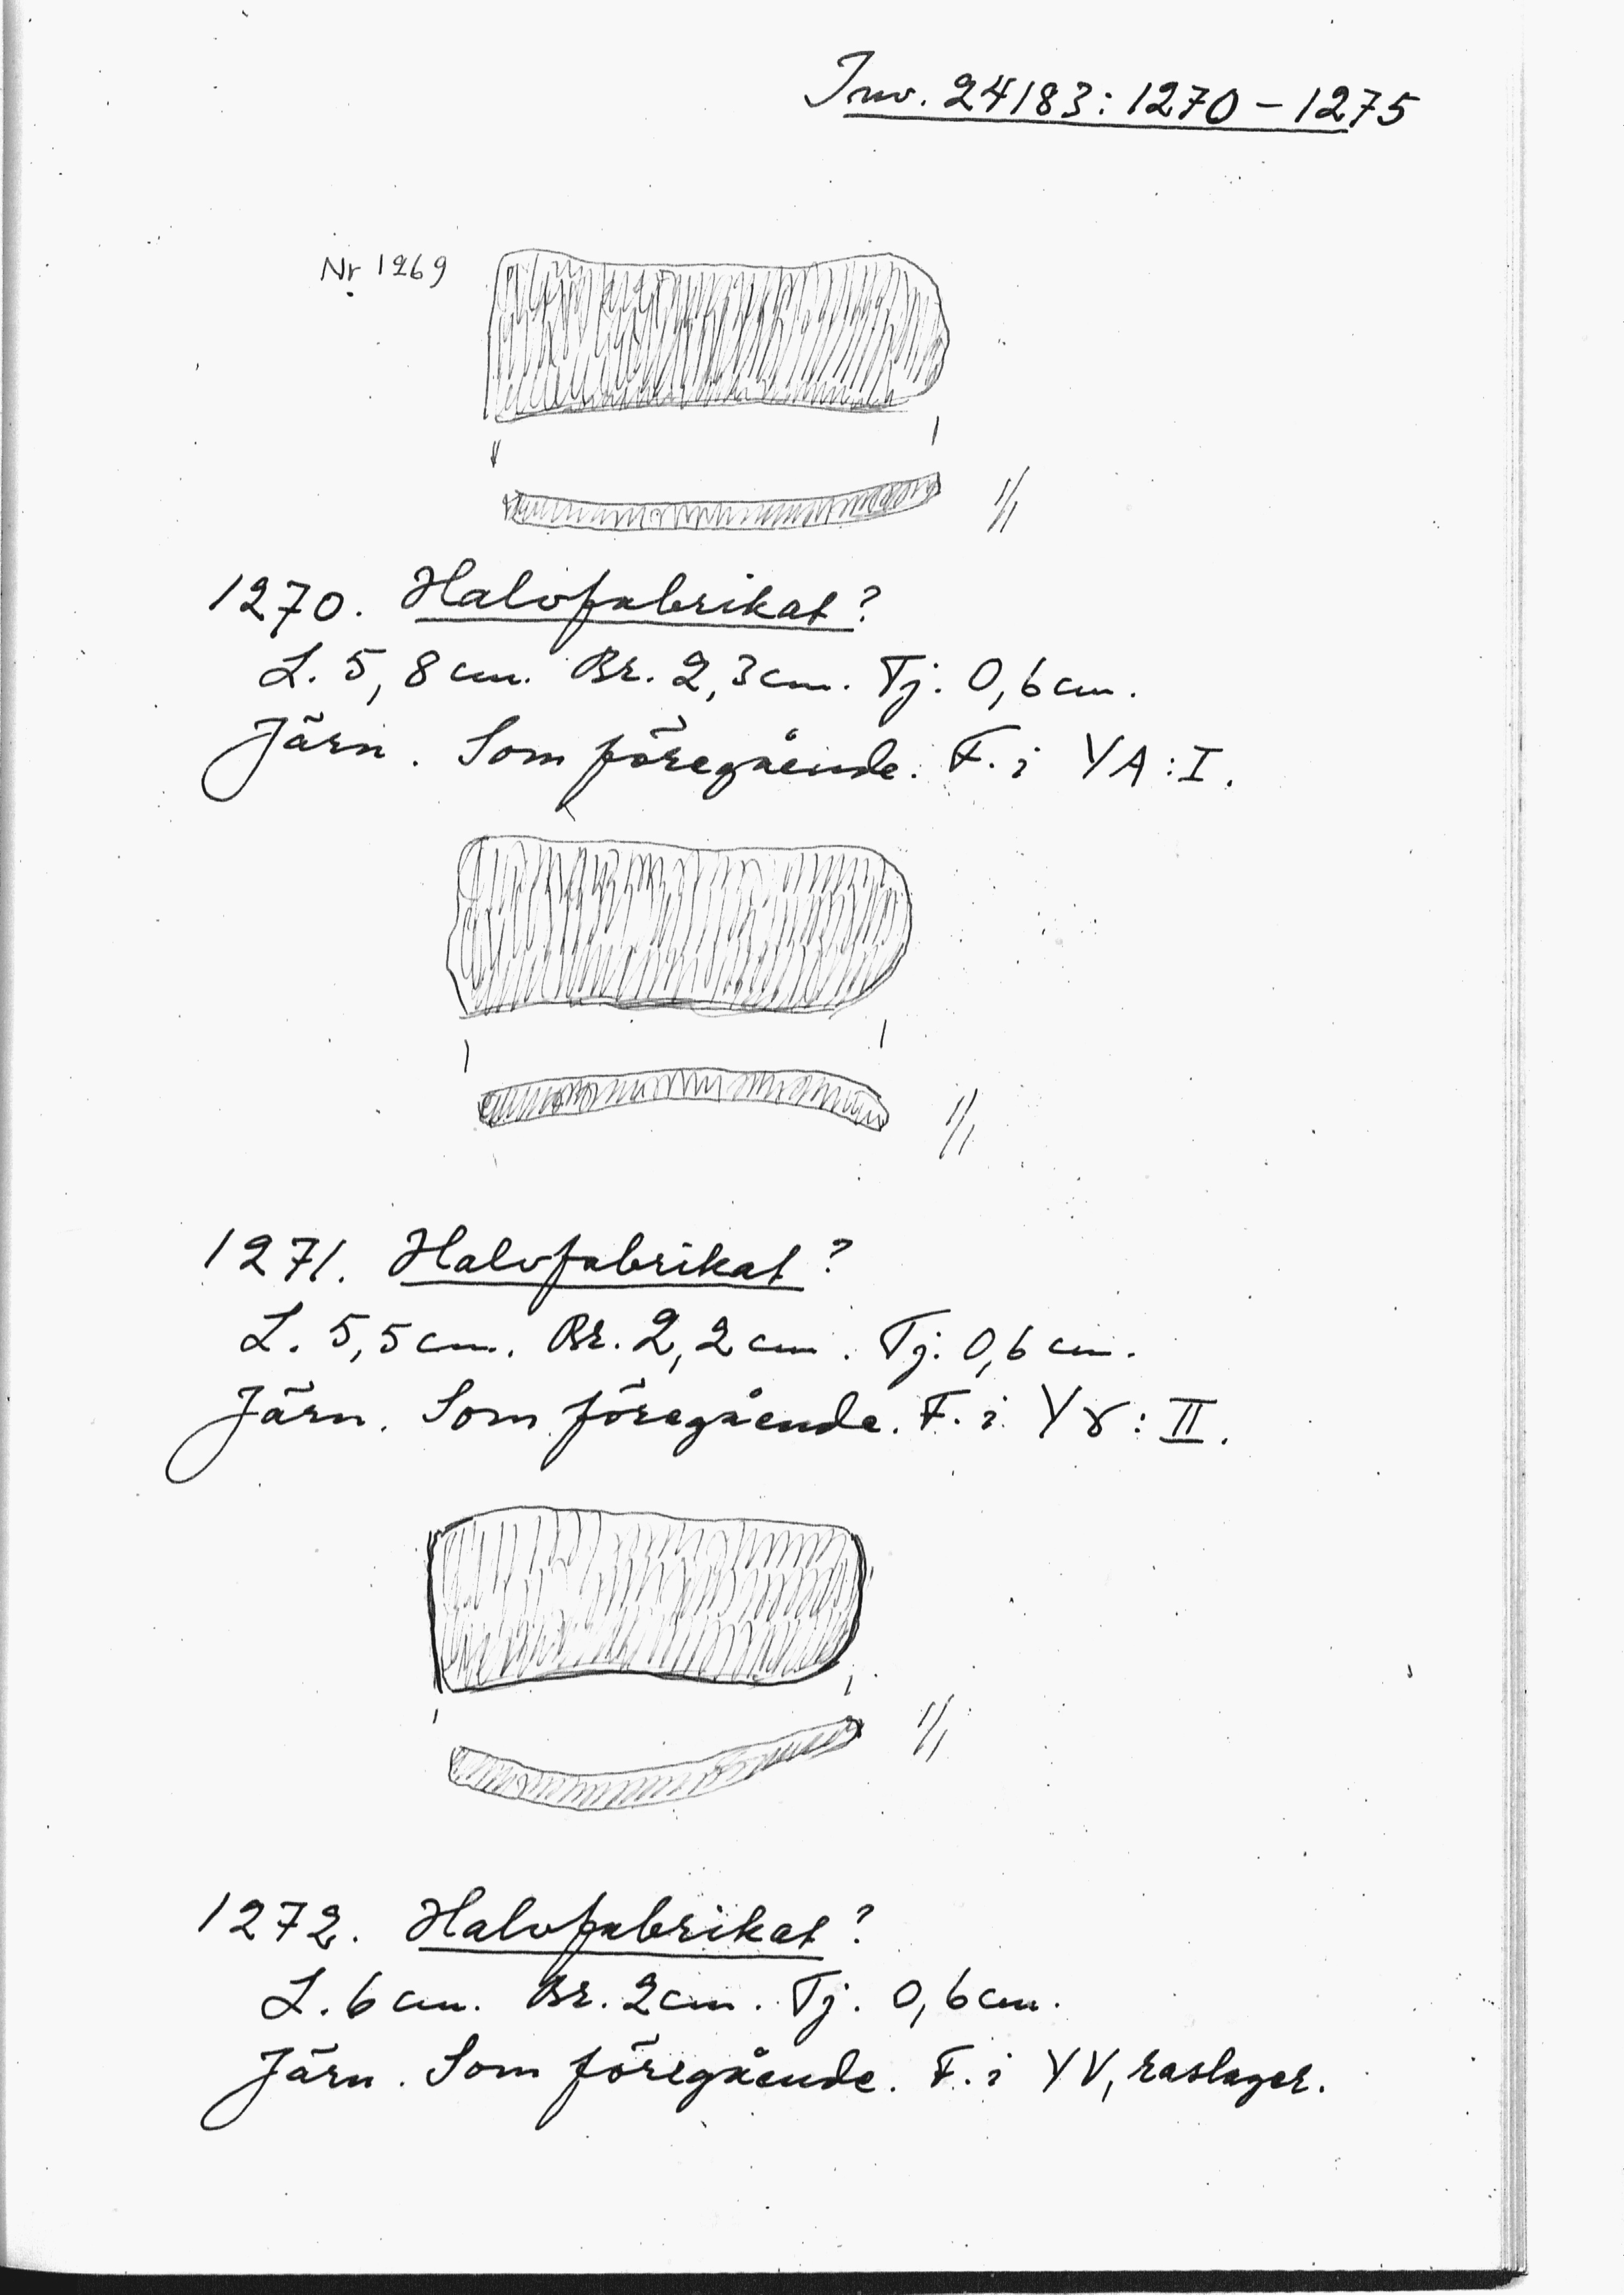 Inv. 24183:1270-1275
Nr 1269
1/1
1270. Halvfabrikat?
L. 5,8 cm. Br. 2,3 cm. Tj. 0,6 cm.
Järn. Som föregående. F. i YA:I.
1/1
1271. Halvfabrikat?
L. 5,5 cm. Br. 2,2 cm. Tj. 0,6 cm.
Järn. Som föregående. F. i Yɤ:II.
1/1
1272. Halvfabrikat?
L. 6 cm. Br. 2 cm. Tj. 0,6 cm.
Järn. Som föregående. F. i YV, raslager.